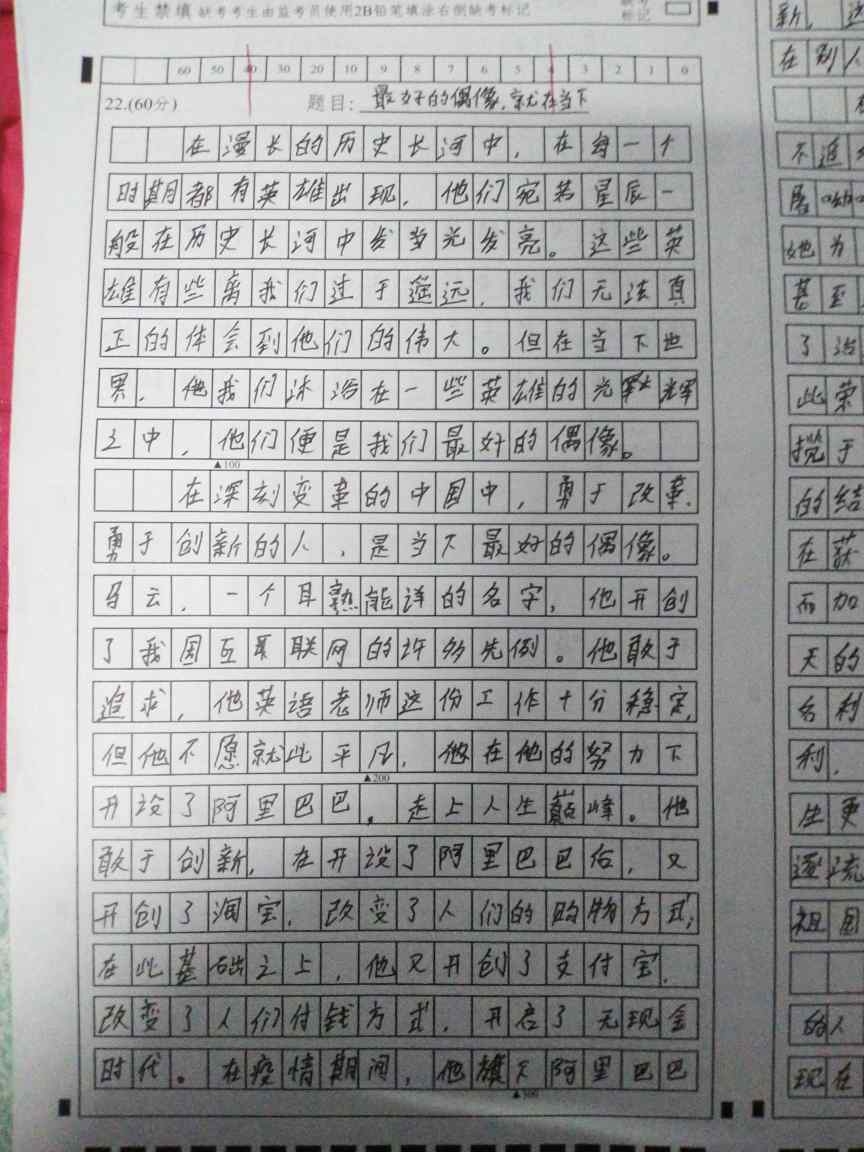 考生禁填 缺考考生由监考员使用2B铅笔填涂右侧缺考标记
标记
60 50 40 30 20 10 9 8 7 6 5 4 3 2 1 0
22.(60分) 题目: 最好的偶像,就在当下
在漫长的历史长河中,在每一个
时期都有英雄出现,他们宛若星辰一
般在历史长河中发当光发亮。这些英
雄有些离我们过于遥远,我们无法真
正的体会到他们的伟大。但在当下世
界,他我们沐浴在一些英雄的光辉
之中,他们便是我们最好的偶像。
▲100
在深刻变革的中国中,勇于改革、
勇于创新的人,是当下最好的偶像。
马云,一个耳熟能详的名字,他开创
了我国互联网的许多先例。他敢于
追求,他英语老师这份工作十分稳定,
但他不愿就此平凡,他在他的努力下
▲200
开设了阿里巴巴,走上人生巅峰。他
敢于创新,在开设了阿里巴巴后,又
开创了淘宝,改变了人们的购物方式,
在此基础之上,他又开创了支付宝,
改变了人们付钱方式,开启了无现金
时代。在疫情期间,他旗下阿里巴巴
▲300
新,
在别人
不追
她为
甚至
了
此荣
揽于
的结
在获
而加
天的
名利
利,
生更
逐流
祖国
的人
现在